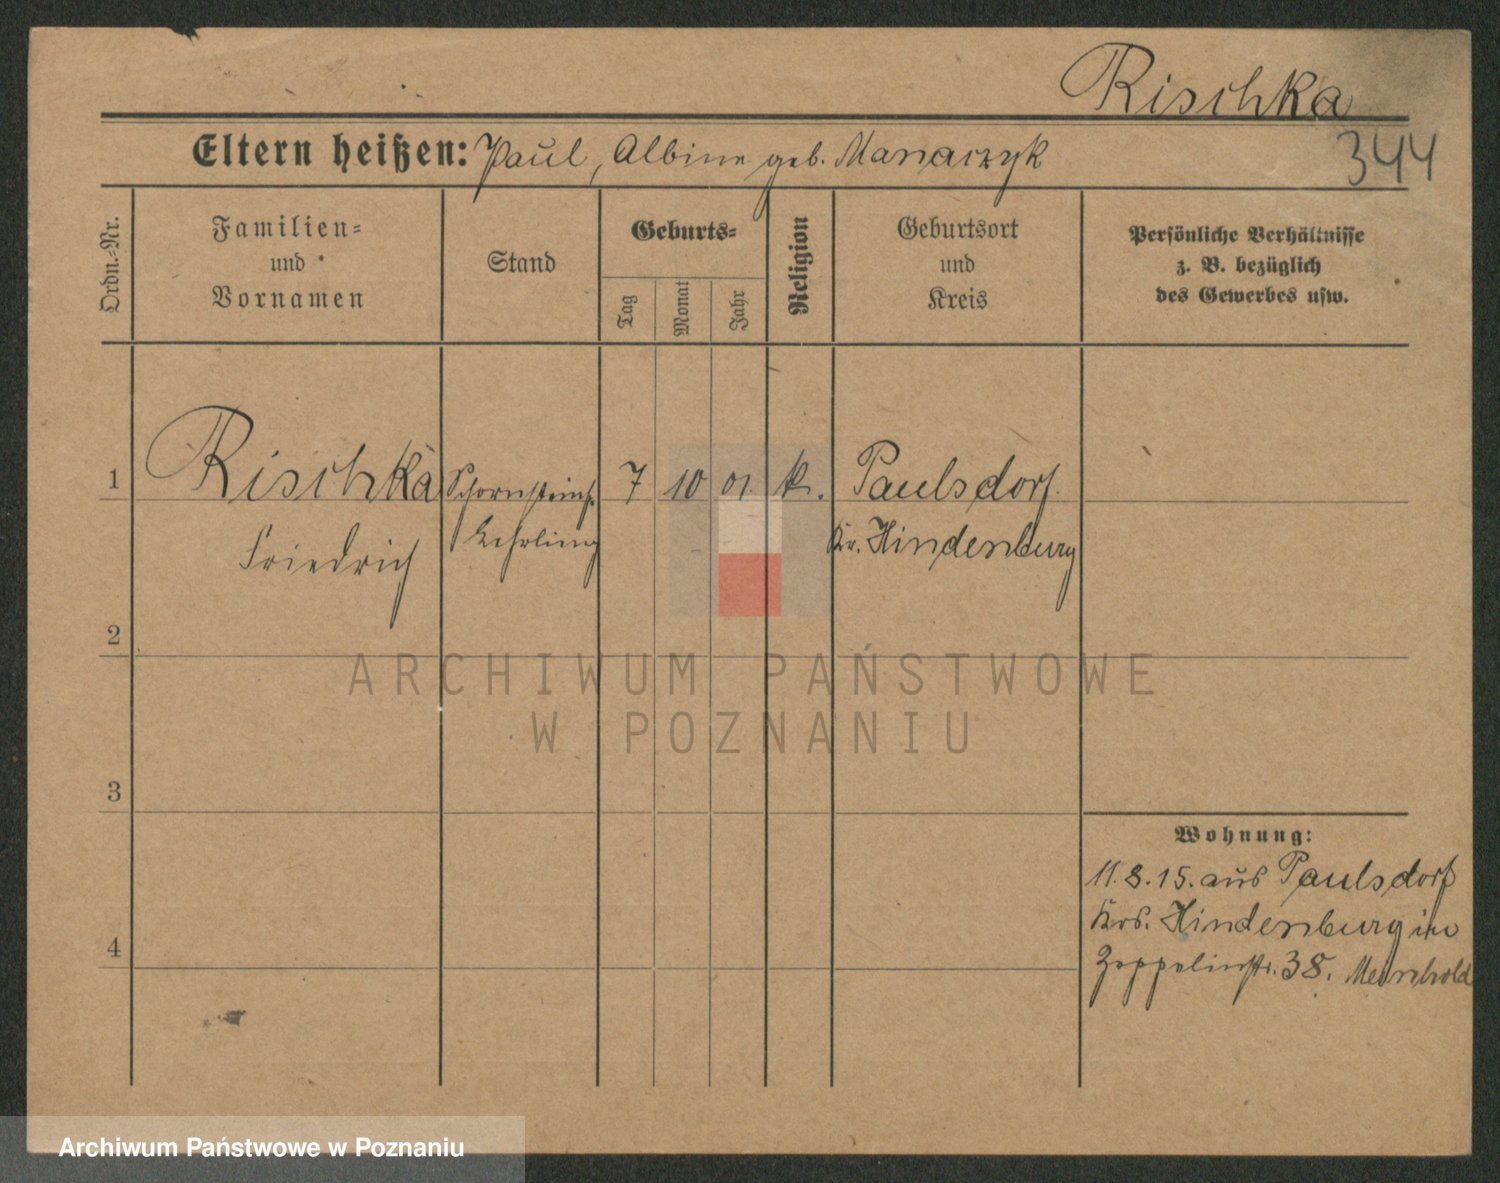 Rischka
344
Eltern heißen: Paul, Albine geb. Manarzyk
Ordn.-Nr.
Familien-
und
Vornamen
Stand
Geburts-
Tag
Monat
Jahr
Religion
Geburtsort
und
Kreis
Persönliche Verhältnisse
z. B. bezüglich
des Gewerbes usw.
1
Rischka Schornsteinf. 7 10 01 k. Paulsdorf.
Friedrich Lehrling Kr. Hindenburg
2
3
4
Wohnung:
11.8.15. aus Paulsdorf
Krs. Hindenburg in
Zeppelinstr. 38. Meinhold
ARCHIWUM PAŃSTWOWE
W POZNANIU
Archiwum Państwowe w Poznaniu